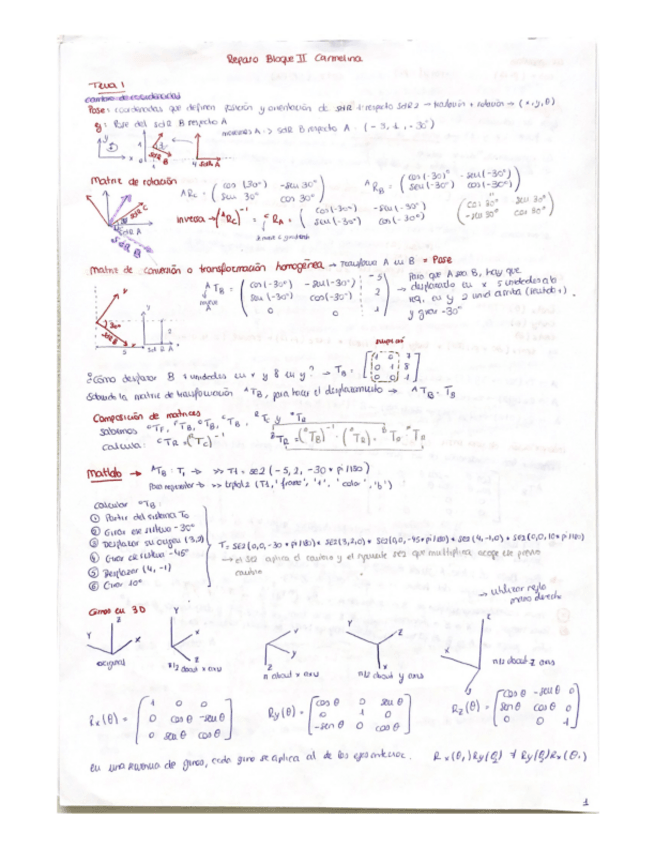 Repaso Bloque II Carmelina
Tema 1
Pose: coordenadas que definen posición y orientación de SdR 1 respecto SdR2 → traslación + rotación → (x, y, θ)
Ej: Pose del SdR B respecto A
A → SdR B respecto A = (-5, 2, -30°)
Matriz de rotación
ARc = ( cos (30°) -sen 30°
sen 30° cos 30° )
ARB = ( cos (-30)° -sen (-30°)
sen (-30°) cos (-30°) )
inversa → (ARc)^-1 = cRA = ( cos (-30°) -sen (-30°)
sen (-30°) cos (-30°) )
( cos 30° sen 30°
-sen 30° cos 30° )
SdR C
SdR A
SdR B
Matriz de conversión o transformación homogénea → Transforma A en B = Pose
ATB = ( cos (-30°) -sen (-30°) -5
sen (-30°) cos (-30°) 2
0 0 1 )
Para que A sea B, hay que
desplazarlo en x 5 unidades a la
y girar -30°
¿Cómo desplazar B 7 unidades en x y 8 en y? → TB = [ 1 0 7
0 1 8
0 0 1 ]
Sabiendo la matriz de transformación ATB, para hacer el desplazamiento → ATB · TB
Composición de matrices
Sabemos
calcula:
Matlab → ATB : T1 → >> T1 = se2 (-5, 2, -30 * pi/180)
Para representar → >> trplot2 (T1, 'frame', '1', 'color', 'b')
Calcular 0TB:
① Partir del sistema T0
② Girar ese sistema -30°
③ Desplazar su origen (3,2)
④ Girar ese sistema -45°
⑤ Desplazar (4, -1)
⑥ Girar 10°
T = se2(0,0,-30 * pi/180) * se2(3,2,0) * se2(0,0,-45*pi/180) * se2(4,-1,0) * se2(0,0,10*pi/180)
→ el se2 aplica el cambio y el siguiente se2 que multiplica acoge ese previo
cambio
→ utilizar regla
mano derecha
Giros en 3D
original
π/2 about x axis
π about x axis
π/2 about y axis
π/2 about z axis
Rx(θ) = [ 1 0 0
0 cos θ -sen θ
0 sen θ cos θ ]
Ry(θ) = [ cos θ 0 sen θ
0 1 0
-sen θ 0 cos θ ]
Rz(θ) = [ cos θ -sen θ 0
sen θ cos θ 0
0 0 1 ]
En una secuencia de giros, cada giro se aplica al de los ejes anteriores. Rx(θ1) Ry(θ2) ≠ Ry(θ2) Rx(θ1)
1